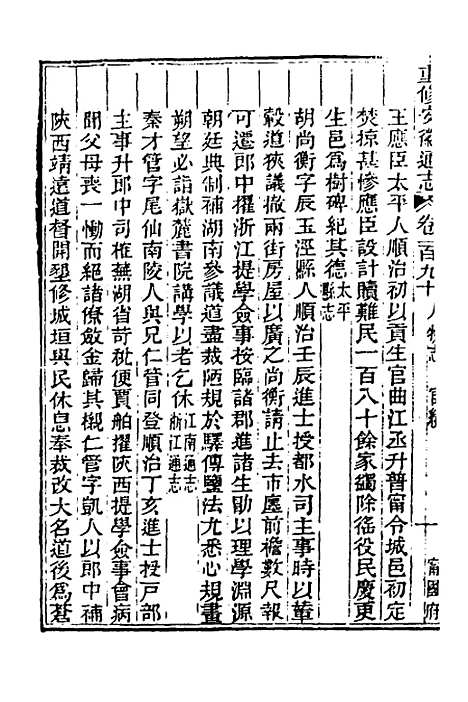 重修安徽通志卷一百九十人物志 宦績 十一 甯國府
王應臣太平人順治初以貢生官曲江丞升普甯令城邑初定
焚掠甚慘應臣設計贖難民一百八十餘家蠲除徭役民慶更
生邑爲樹碑紀其德太平縣志
胡尚衡字辰玉涇縣人順治壬辰進士授都水司主事時以輦
轂道狹議撤兩街房屋以廣之尚衡請止去市廛前檐數尺報
可遷郎中擢浙江提學僉事按臨諸郡進諸生勛以理學淵源
朝廷典制補湖南參議道盡裁陋規於驛傳鹽法尤悉心規畫
朔望必詣嶽麓書院講學以老乞休江南通志浙江通志
秦才管字尾仙南陵人與兄仁管同登順治丁亥進士授戶部
主事升郎中司榷蕪湖省苛秕便賈舶擢陝西提學僉事曾病
聞父母喪一慟而絕諸僚斂金歸其櫬仁管字凱人以郎中補
陝西靖遠道督開墾修城垣與民休息奉裁改大名道後爲蒼